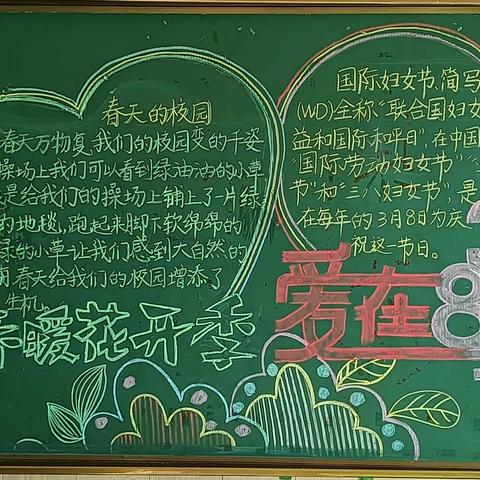 春天的校园
春天万物复,我们的校园变的千姿
操场上我们可以看到绿油油的小草
是给我们的操场上铺上了一片绿
的地毯,跑起来脚下软绵绵的
绿的小草让我们感到大自然的
春天给我们的校园增添了
生机
春暖花开季
国际妇女节,简写
(WD)全称"联合国妇女
益和国际和平日",在中国
"国际劳动妇女节""
节"和"三八妇女节",是
在每年的3月8日为庆
祝这一节日。
爱在